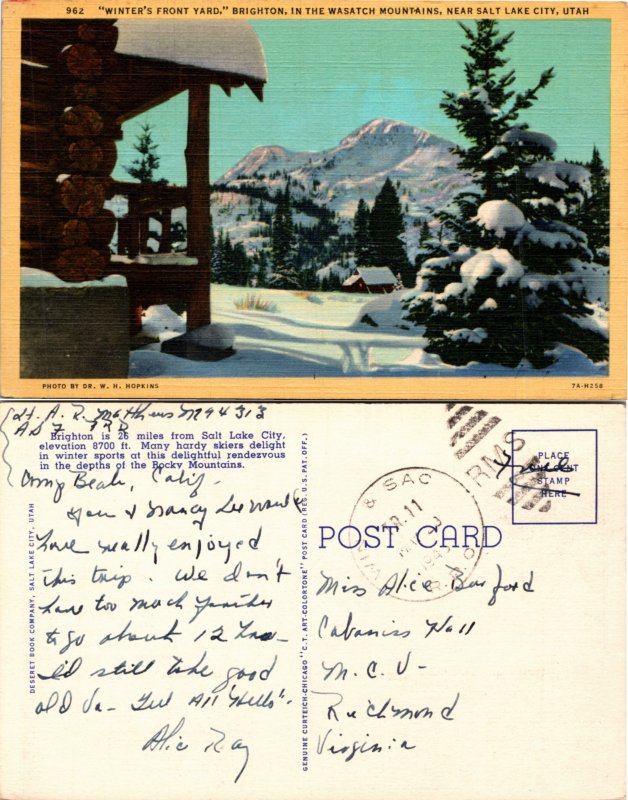 962 "WINTER'S FRONT YARD," BRIGHTON, IN THE WASATCH MOUNTAINS, NEAR SALT LAKE CITY, UTAH
PHOTO BY DR. W. H. HOPKINS
7A-H258
A. R. Matthews
Brighton is 26 miles from Salt Lake City,
elevation 8700 ft. Many hardy skiers delight
in winter sports at this delightful rendezvous
in the depths of the Rocky Mountains.
Beach, Calif.
You & Nancy Lee would
have really enjoyed
this trip. We don't
have too much farther
to go about 12 hrs
I'd still take good
old Va - Tell All "Hello".
Ray
DESERET BOOK COMPANY, SALT LAKE CITY, UTAH
GENUINE CURTEICH-CHICAGO "C.T. ART-COLORTONE" POST CARD (REG. U.S. PAT. OFF.)
POST CARD
& SAC
R.P.O.
RMS
PLACE
ONE CENT
STAMP
HERE
Miss Alice Burford
Cabaniss Hall
M. C. V-
Richmond
Virginia